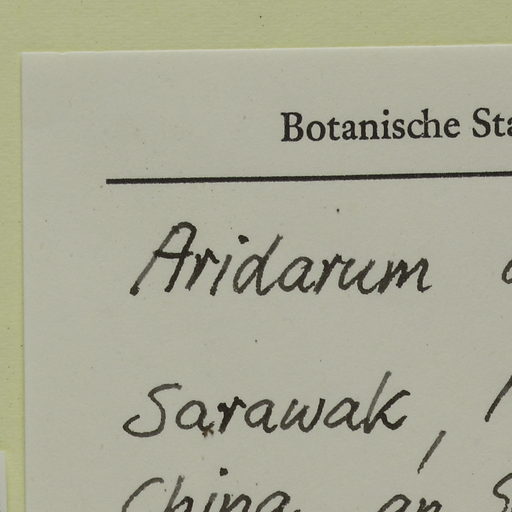 Botanische Sta
Aridarum
Sarawak,
China, an